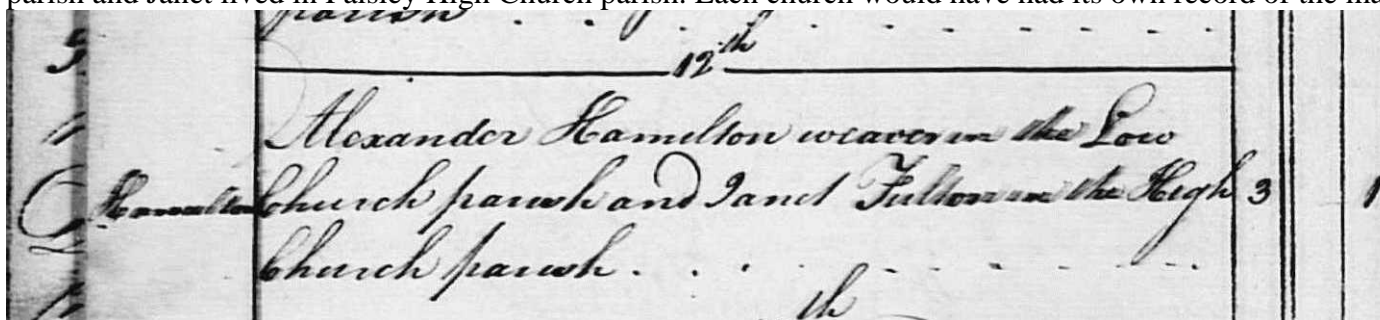 parish and Janet lived in Paisley High Church parish. Each church would have had its own record of the
parish
12th
Alexander Hamilton weaver in the Low
Hamilton Church parish and Janet Fulton in the High 3
Church parish
th